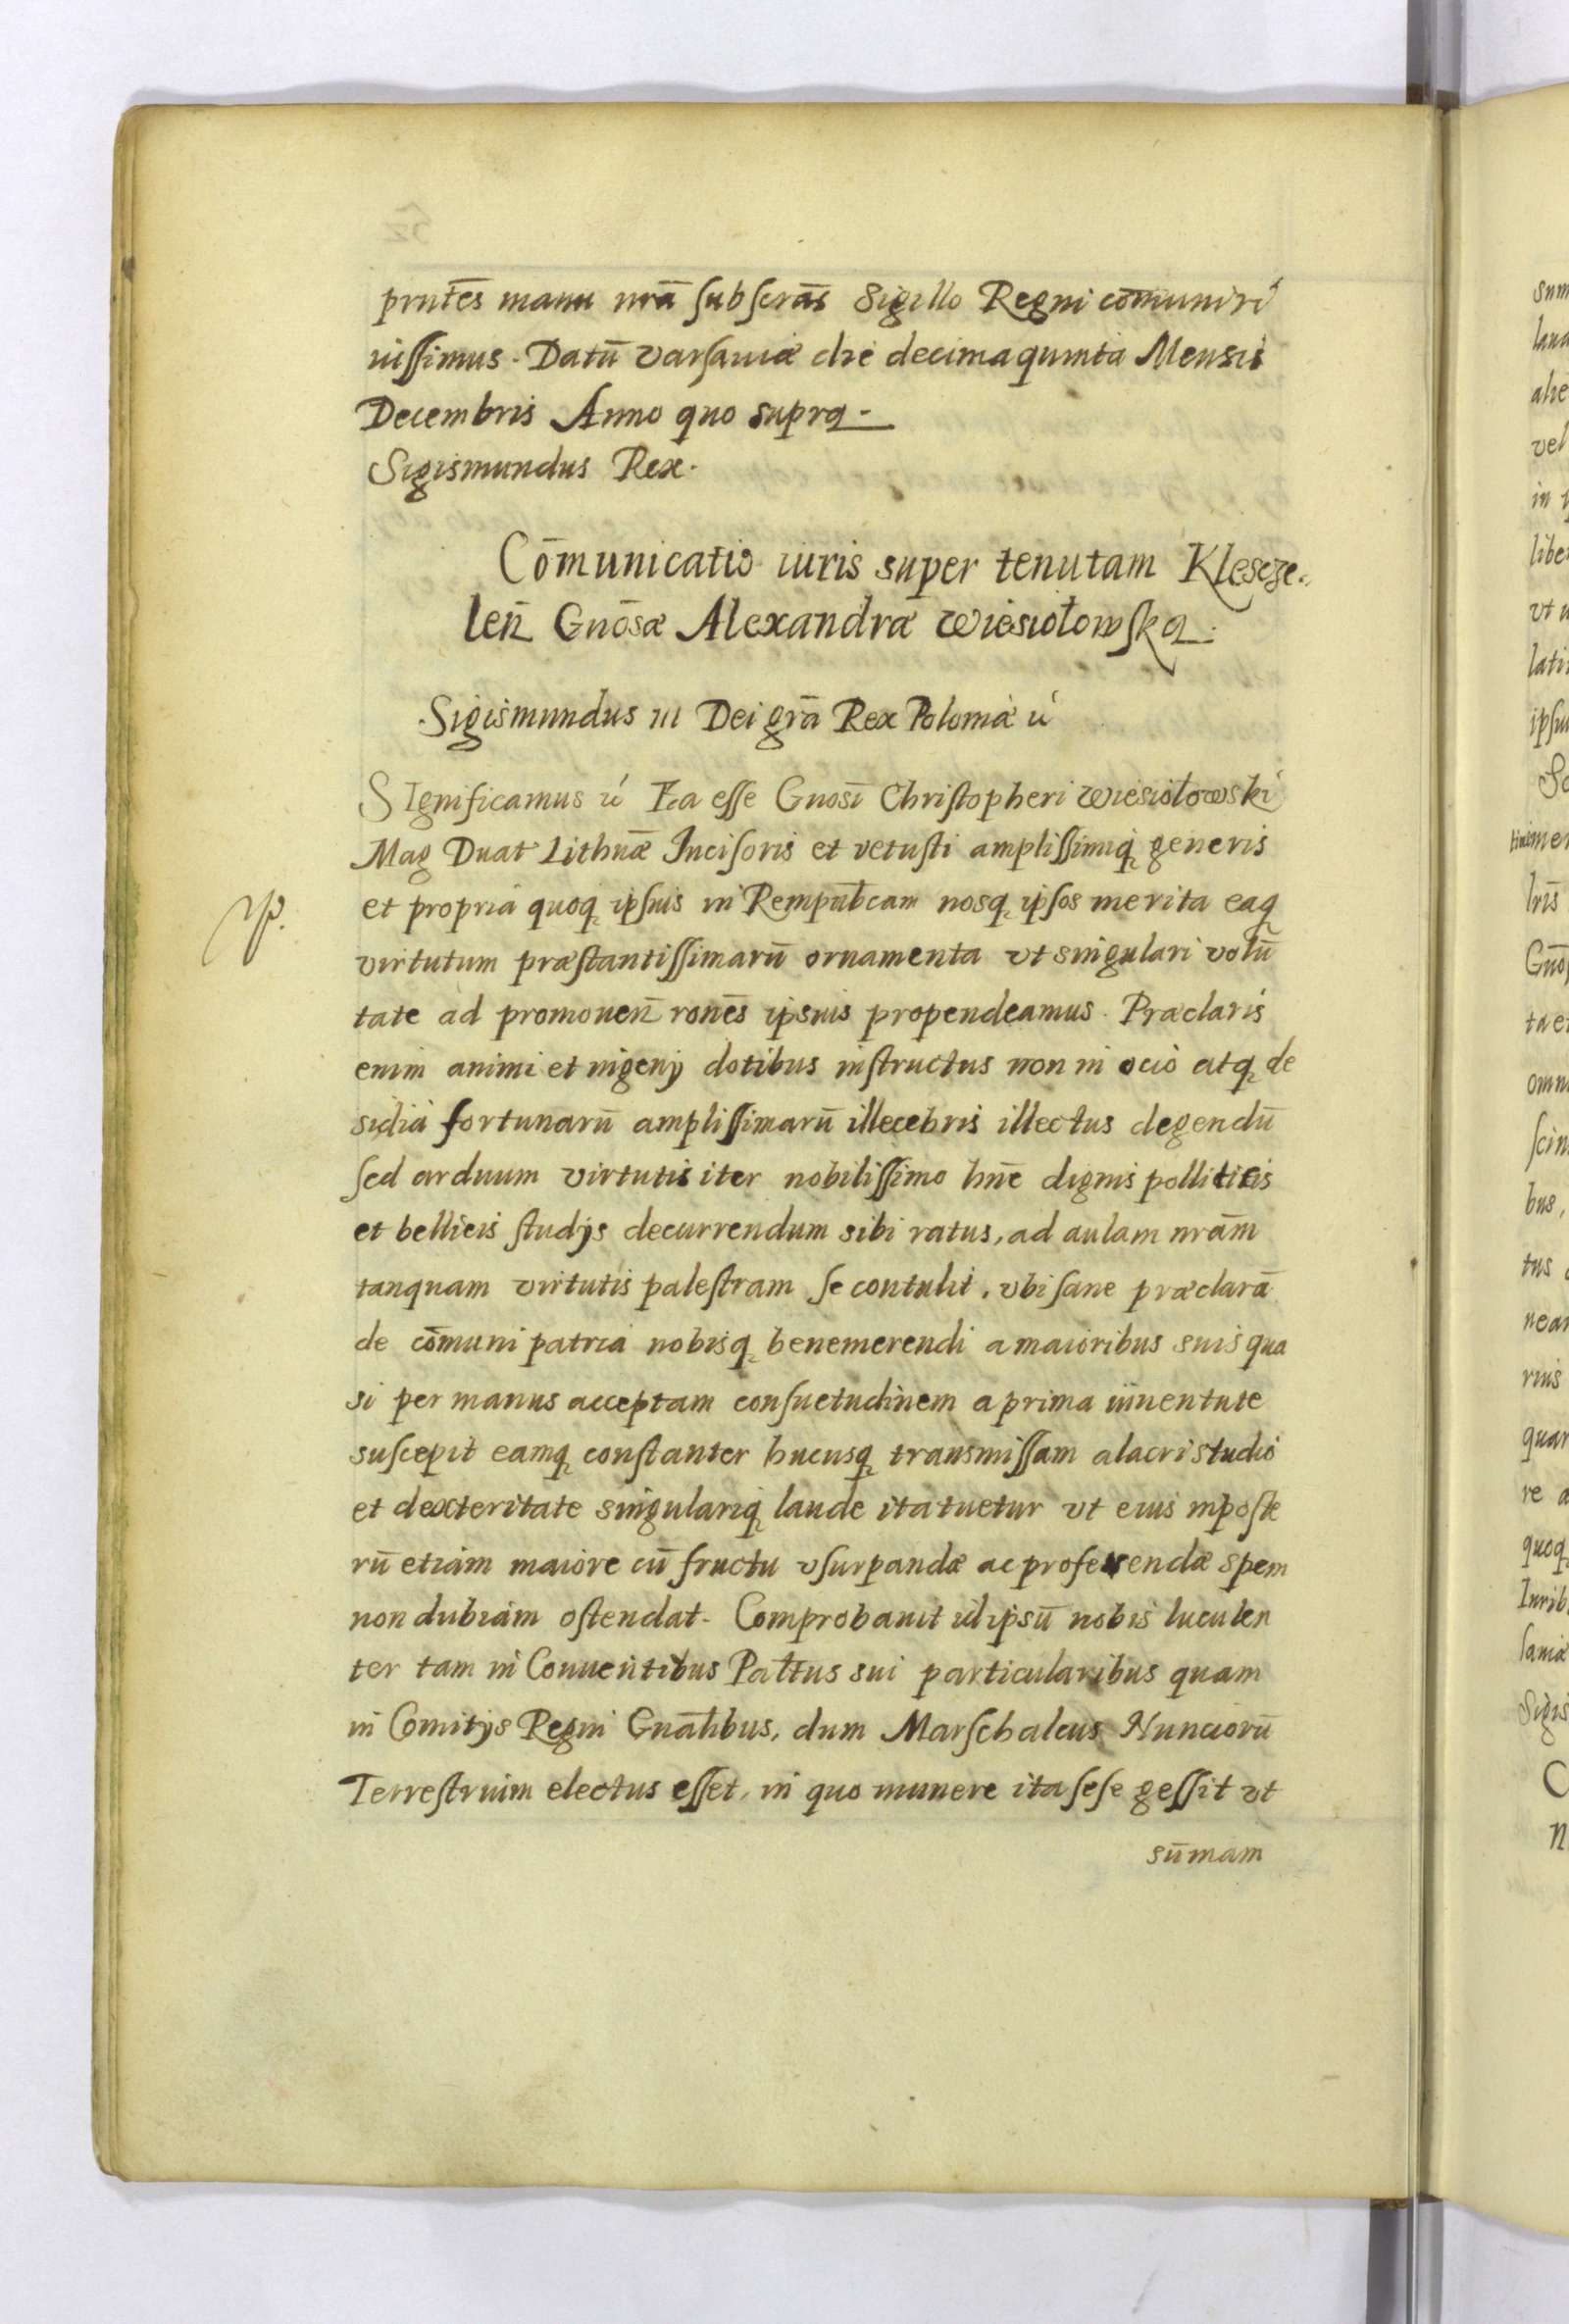 prntēs manu nrā subscrās Sigillo Regni cōmuniri
iussimus. Datū Varsauiæ die decima quinta Mensis
Decembris Anno quo supra.
Sigismundus Rex.
Cōmunicatio iuris super tenutam Klescze
len̄ Gnōsæ Alexandræ Wiesiołowska.
Sigismundus III Dei grā Rex Poloniæ
Significamus Ea esse Gnosī Christopheri Wiesiołowski
Mag Ducat Lithuǣ Incisoris et vetusti amplissimiq generis
et propria quoq ipsius in Rempubcam nosq ipsos merita eaq
virtutum præstantissimarū ornamenta vt singulari volū
tate ad promouen̄ ronēs ipsius propendeamus. Præclaris
enim animi et ingenij dotibus instructus non in ocio atq de
sidia fortunarū amplissimarū illecebris illectus degendū
sed arduum virtutis iter nobilissimo hnē dignis polliticis
et bellicis studijs decurrendum sibi ratus, ad aulam nrām
tanquam virtutis palestram se contulit, vbi sane præclarā
de cōmuni patria nobisq benemerendi a maioribus suis qua
si per manus acceptam consuetudinem a prima iuuentute
suscepit eamq constanter hucusq transmissam alacri studio
et dexteritate singulariq laude ita tuetur vt eius inposte
rū etiam maiore cū fructu vsurpandæ ac proferendæ spem
non dubiam ostendat. Comprobauit id ipsū nobis luculen
ter tam in Conuentibus Pałtus sui particularibus quam
in Comitijs Regni Gnālibus, dum Marschalcus Nunciorū
Terrestrium electus esset, in quo munere ita sese gessit vt
sūmam